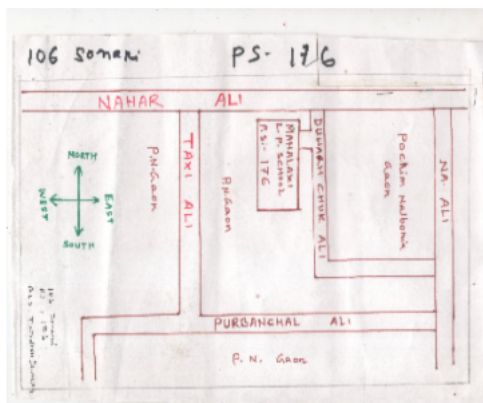 106 Sonari PS- 176
NAHAR ALI
NORTH
WEST
EAST
SOUTH
P.N. Gaon
TAXI ALI
P.N. Gaon
MAHALAXMI
L.P. SCHOOL
P.S:- 176
CHUK ALI
Pochim Nalbonia
Gaon
NA- ALI
PURBANCHAL ALI
P. N. Gaon
106 Sonari